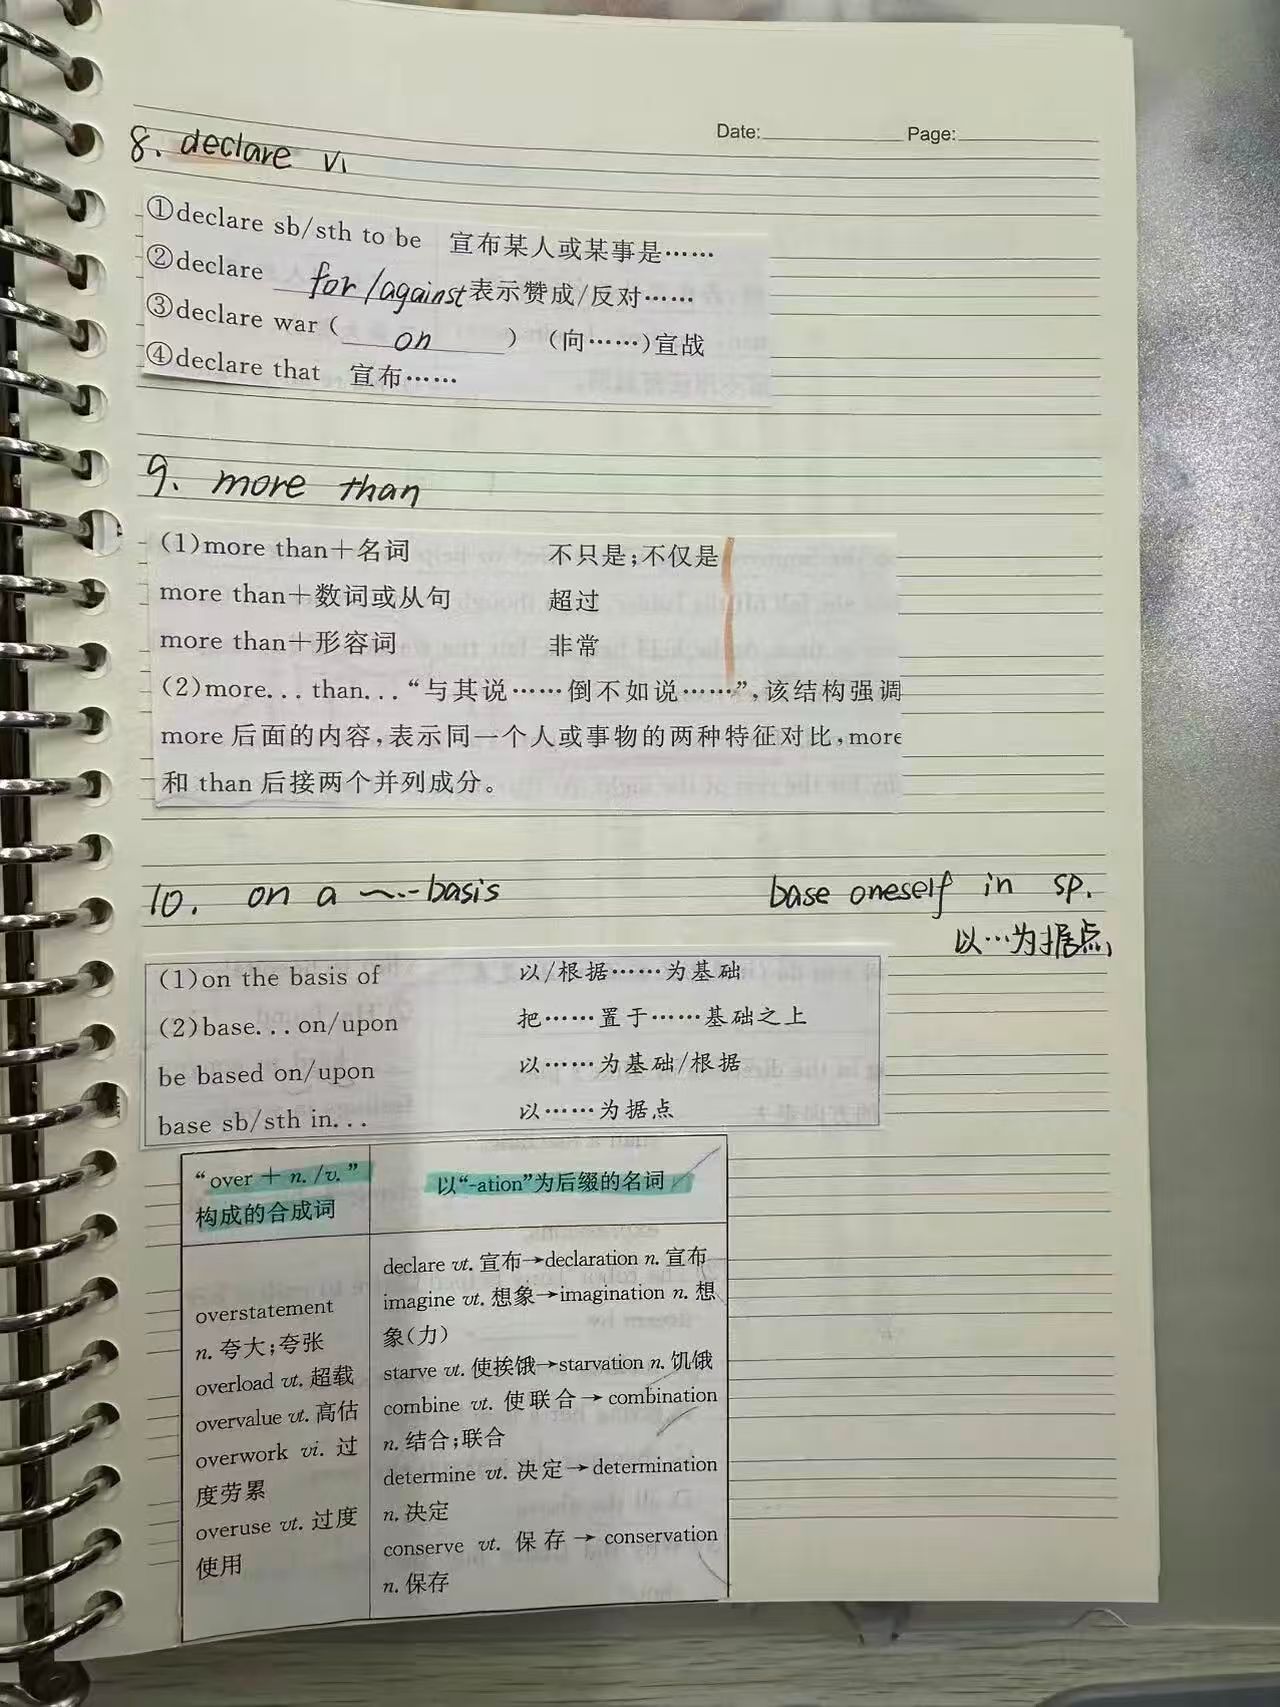 Date: Page:
8. declare vi
①declare sb/sth to be 宣布某人或某事是……
②declare for/against 表示赞成/反对……
③declare war ( on ) (向……)宣战
④declare that 宣布……
9. more than
(1)more than+名词 不只是;不仅是
more than+数词或从句 超过
more than+形容词 非常
(2)more... than... “与其说……倒不如说……”,该结构强调
more 后面的内容,表示同一个人或事物的两种特征对比,more
和 than 后接两个并列成分。
10. on a ~...basis base oneself in sp.
以…为据点
(1)on the basis of 以/根据……为基础
(2)base... on/upon 把……置于……基础之上
be based on/upon 以……为基础/根据
base sb/sth in... 以……为据点
“over + n./v.”
构成的合成词
以“-ation”为后缀的名词
overstatement
n. 夸大;夸张
overload vt. 超载
overvalue vt. 高估
overwork vi. 过
度劳累
overuse vt. 过度
使用
declare vt. 宣布→declaration n. 宣布
imagine vt. 想象→imagination n. 想
象(力)
starve vt. 使挨饿→starvation n. 饥饿
combine vt. 使联合→combination
n. 结合;联合
determine vt. 决定→determination
n. 决定
conserve vt. 保存→conservation
n. 保存